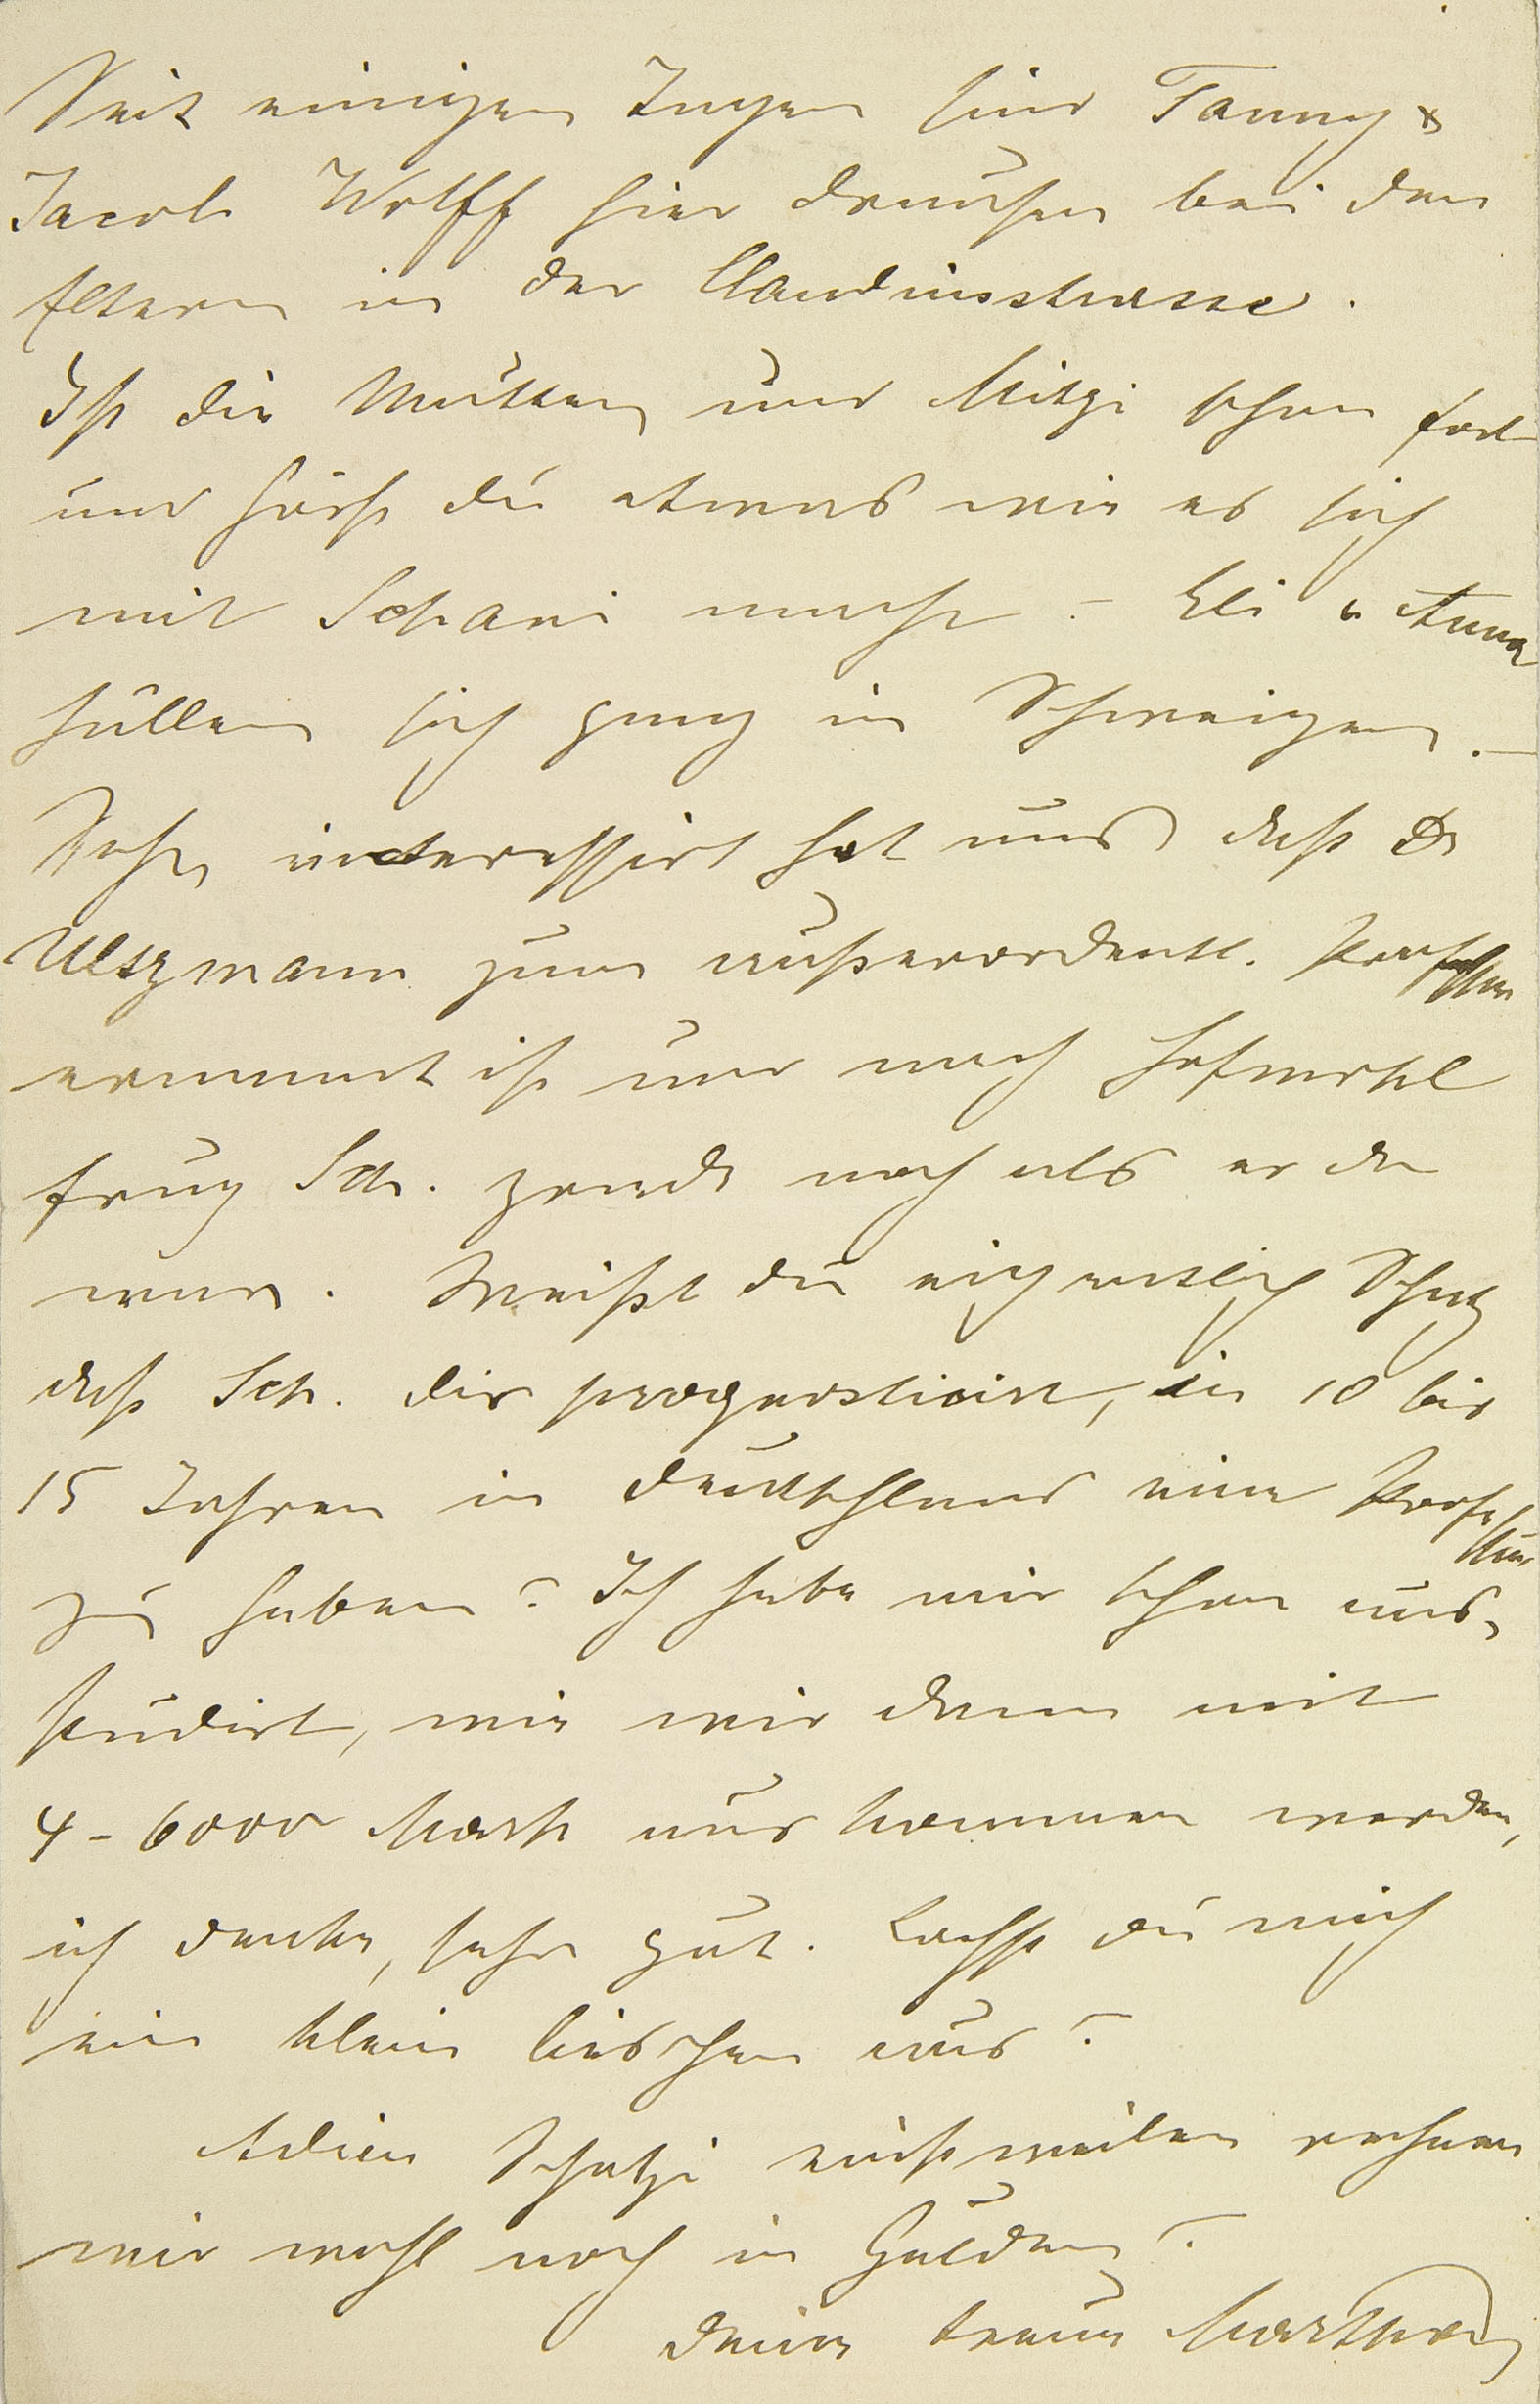 Seit einigen Tagen sind Fanny &
Jacob Wolff hier draußen bei den
Eltern in der Claudiusstrasse.
Ist die Mutter und Mitzi schon fort
und hörst du etwas wie es sich
mit Schani macht – Eli u Anna
hüllen sich ganz in Schweigen. –
Sehr interessirt hat uns daß Dr
Ultzmann zum außerordentl. Professor
ernannt ist und nach Hofmokl
frug Sch. grade noch als er da
war. Weißt du eigentlich Schatz
daß Sch. dir prognosticirt, in 10 bis
15 Jahren in Deutschland eine Professur
zu haben? Ich habe mir schon aus-
studirt, wie wir dann mit
4–6000 Mark auskommen werden,
ich denke, sehr gut. Lachst du mich
ein klein bischen aus?
Adieu Schatzi einstweilen rechnen
wir wohl noch in Gulden?
deine treue Martha